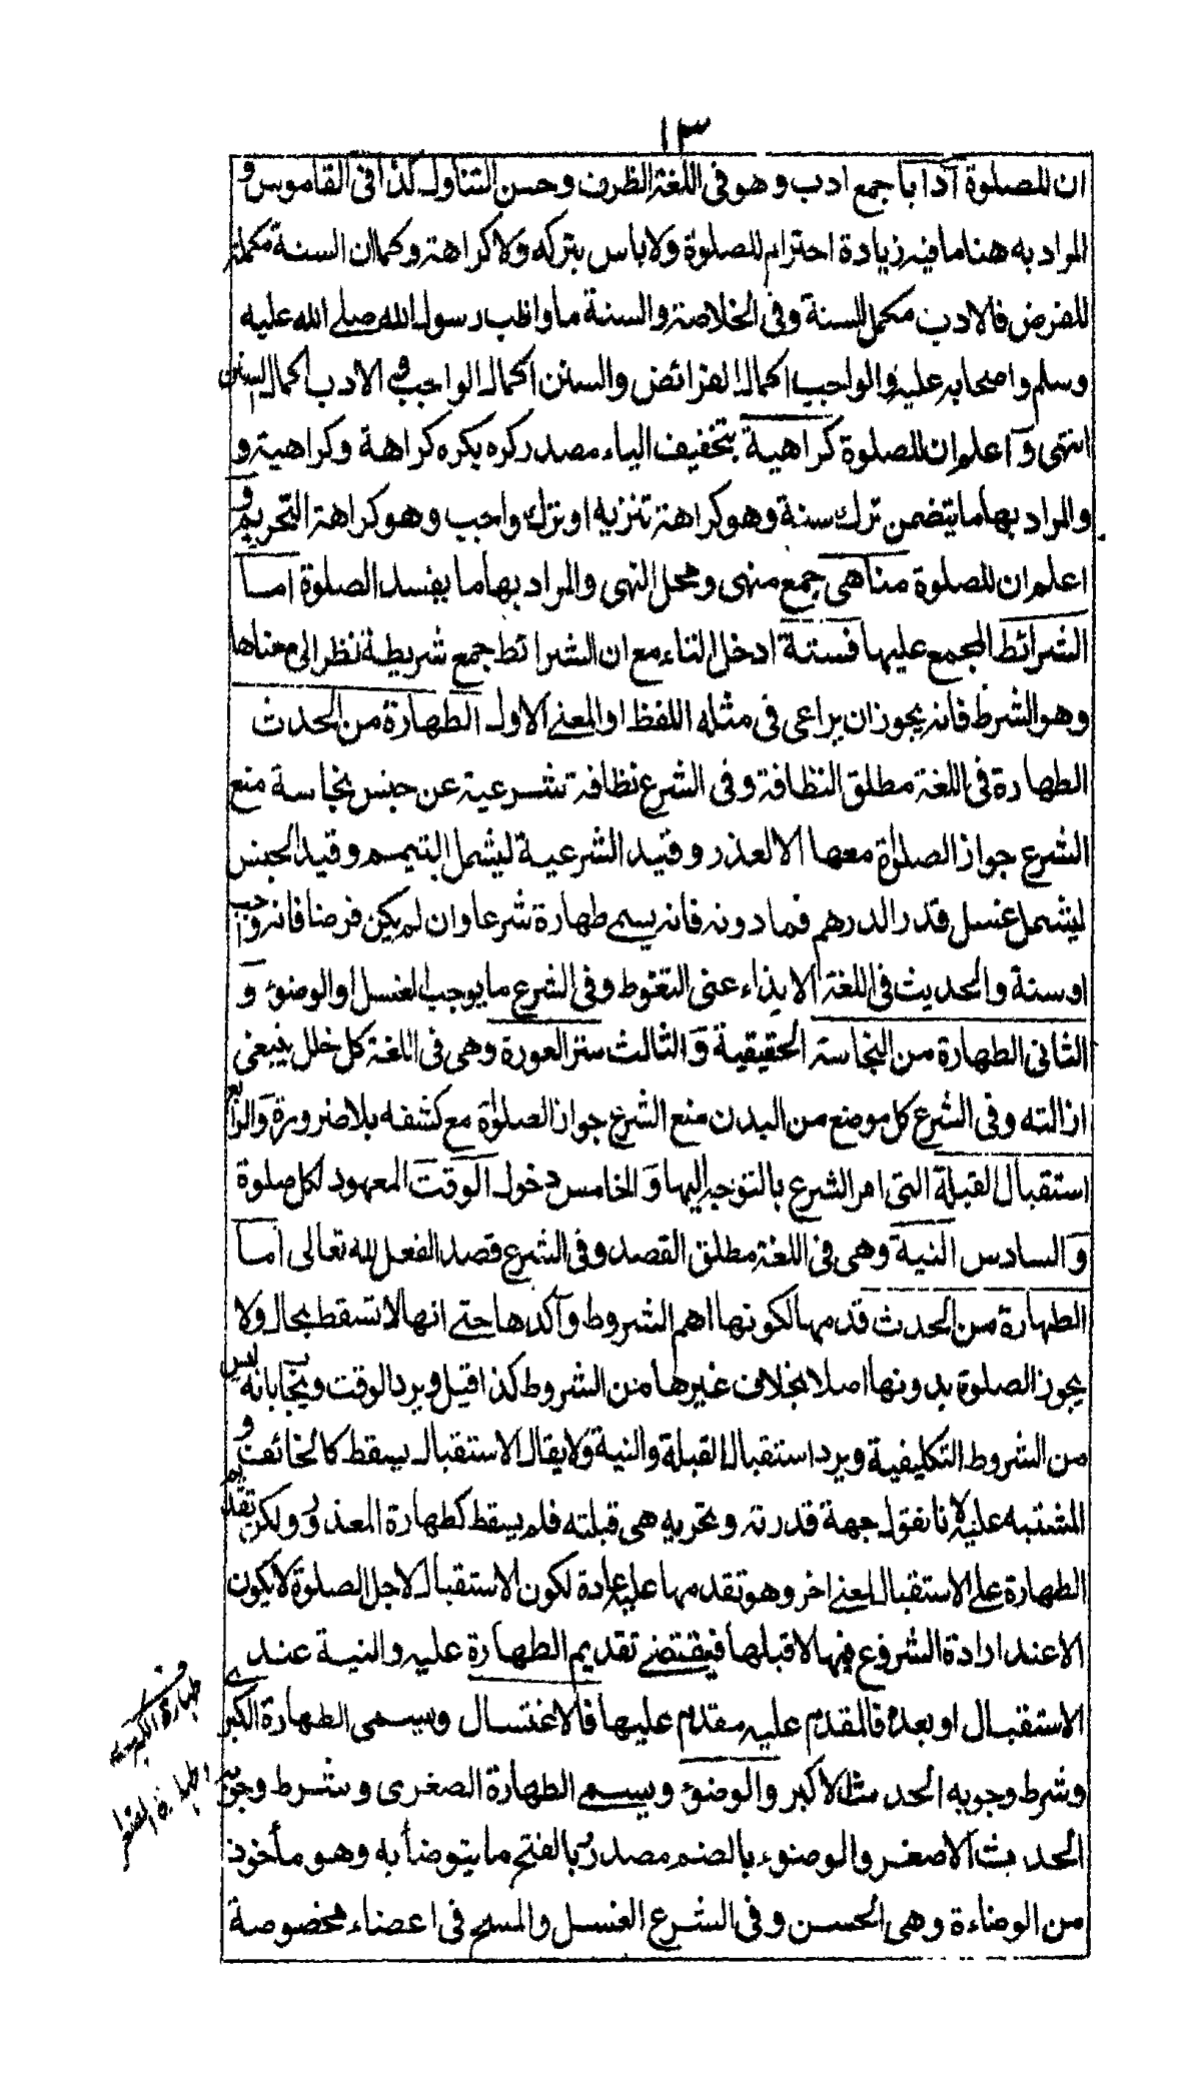 ١٣
ان للصلوة آدابا جمع ادب وهو فى اللغة الظرف وحسن التناول كذا فى القاموس و
المراد به هنا ما فيه زيادة احترام للصلوة ولا باس بتركه ولا كراهة وكما ان السنة مكملة
للفرض فالادب مكمل للسنة وفى الخلاصة والسنة ما واظب رسول الله صلى الله عليه
وسلم واصحابه عليه والواجب اكمال الفرائض والسنن اكمال الواجب و الادب اكمال السنن
انتهى و اعلم ان للصلوة كراهية بتخفيف الياء مصدر كره يكره كراهة وكراهية و
والمراد بها ما يتضمن ترك سنة وهو كراهة تنزيه او ترك واجب وهو كراهة التحريم و
اعلم ان للصلوة مناهى جمع منهى ومحل النهى والمراد بها ما يفسد الصلوة اما
الشرائط المجمع عليها فستة ادخل التاء مع ان الشرائط جمع شريطة نظرا الى معناها
وهو الشرط فانه يجوز ان يراعى فى مثله اللفظ او المعنى الاول الطهارة من الحدث
الطهارة فى اللغة مطلق النظافة وفى الشرع نظافة شرعية عن جنس نجاسة منع
الشرع جواز الصلوة معها الا لعذر وقيد الشرعية ليشمل التيمم وقيد الجنس
ليشمل غسل قدر الدرهم فما دونه فانه يسمى طهارة شرعا وان لم يكن فرضا فانه واجب
او سنة والحديث فى اللغة الايذاء عنى التغوط وفى الشرع ما يوجب الغسل او الوضوء و
الثانى الطهارة من النجاسة الحقيقية و الثالث ستر العورة وهى فى اللغة كل خلل ينبغى
ازالته وفى الشرع كل موضع من البدن منع الشرع جواز الصلوة مع كشفه بلا ضرورة والرابع
استقبال القبلة التى امر الشرع بالتوجه اليها و الخامس دخول الوقت المعهود لكل صلوة
و السادس النية وهى فى اللغة مطلق القصد وفى الشرع قصد الفعل لله تعالى اما
الطهارة من الحدث قدمها لكونها اهم الشروط وآكدها حتى انها لا تسقط بحال ولا
يجوز الصلوة بدونها اصلا بخلاف غيرها من الشروط كذا قيل ويرد الوقت ويجاب بانه ليس
من الشروط التكليفية ويرد استقبال القبلة والنية ولا يقال الاستقبال يسقط كالخائف و
المشتبه عليه لانا نقول جهة قدرته وتحريه هى قبلته فلم يسقط كطهارة المعذور ولكن تقدم
الطهارة على الاستقبال لمعنى اخر وهو تقدمها عليه عادة لكون الاستقبال لاجل الصلوة لا يكون
الا عند ارادة الشروع فيها لا قبلها فيقتضى تقديم الطهارة عليه والنية عندى
الاستقبال او بعده فالمقدم عليه مقدم عليها فالاغتسال ويسمى الطهارة الكبرى
وشرط وجوبه الحدث الاكبر والوضوء ويسمى الطهارة الصغرى وشرط وجوبه
الحدث الاصغر والوضوء بالضم مصدر وبالفتح ما يتوضأ به وهو مأخوذ
من الوضاءة وهى الحسن وفى الشرع الغسل والمسح فى اعضاء مخصوصة